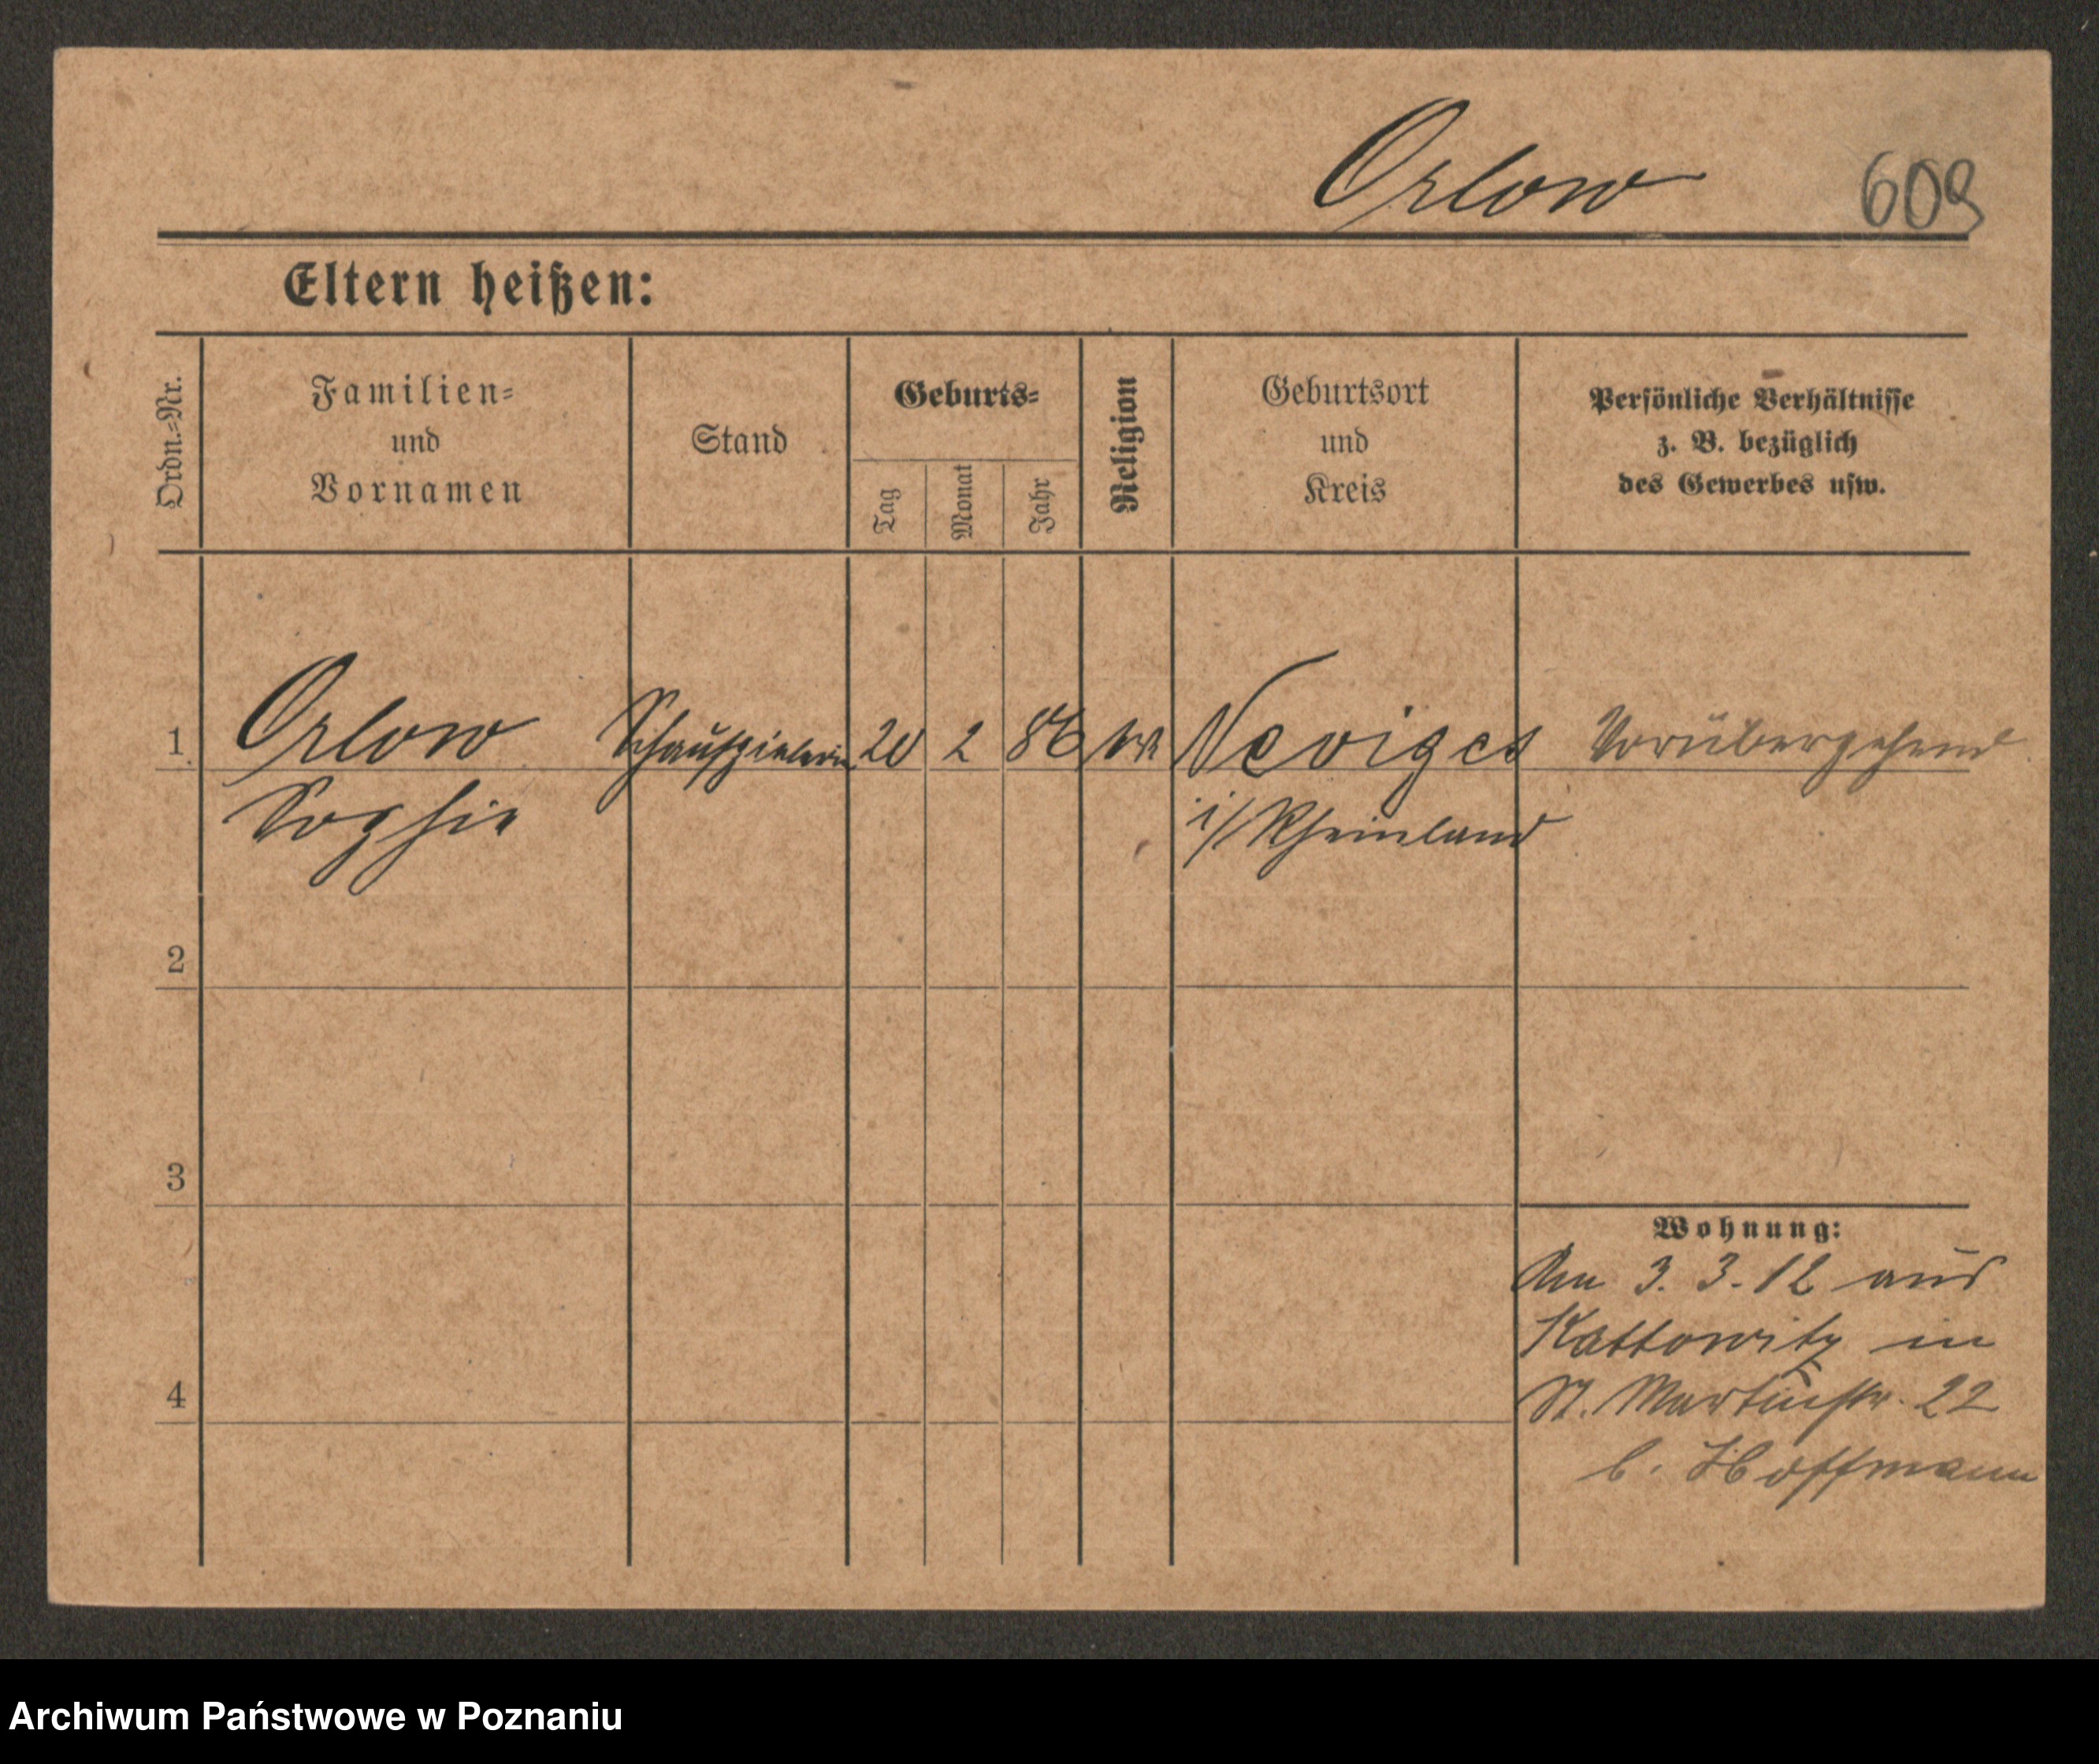 Orlow 609
Eltern heißen:
Ordn.-Nr.
Familien-
und
Vornamen
Stand
Geburts-
Tag
Monat
Jahr
Religion
Geburtsort
und
Kreis
Persönliche Verhältnisse
z. B. bezüglich
des Gewerbes usw.
1 Orlow Schauspielerin 20 2 86 Neviges Vorübergehend
Sophie i/Rheinland
2
3
Wohnung:
Am 3. 3. 12 aus
Kattowitz in
4 St. Martinstr. 22
b. Hoffmann
Archiwum Państwowe w Poznaniu